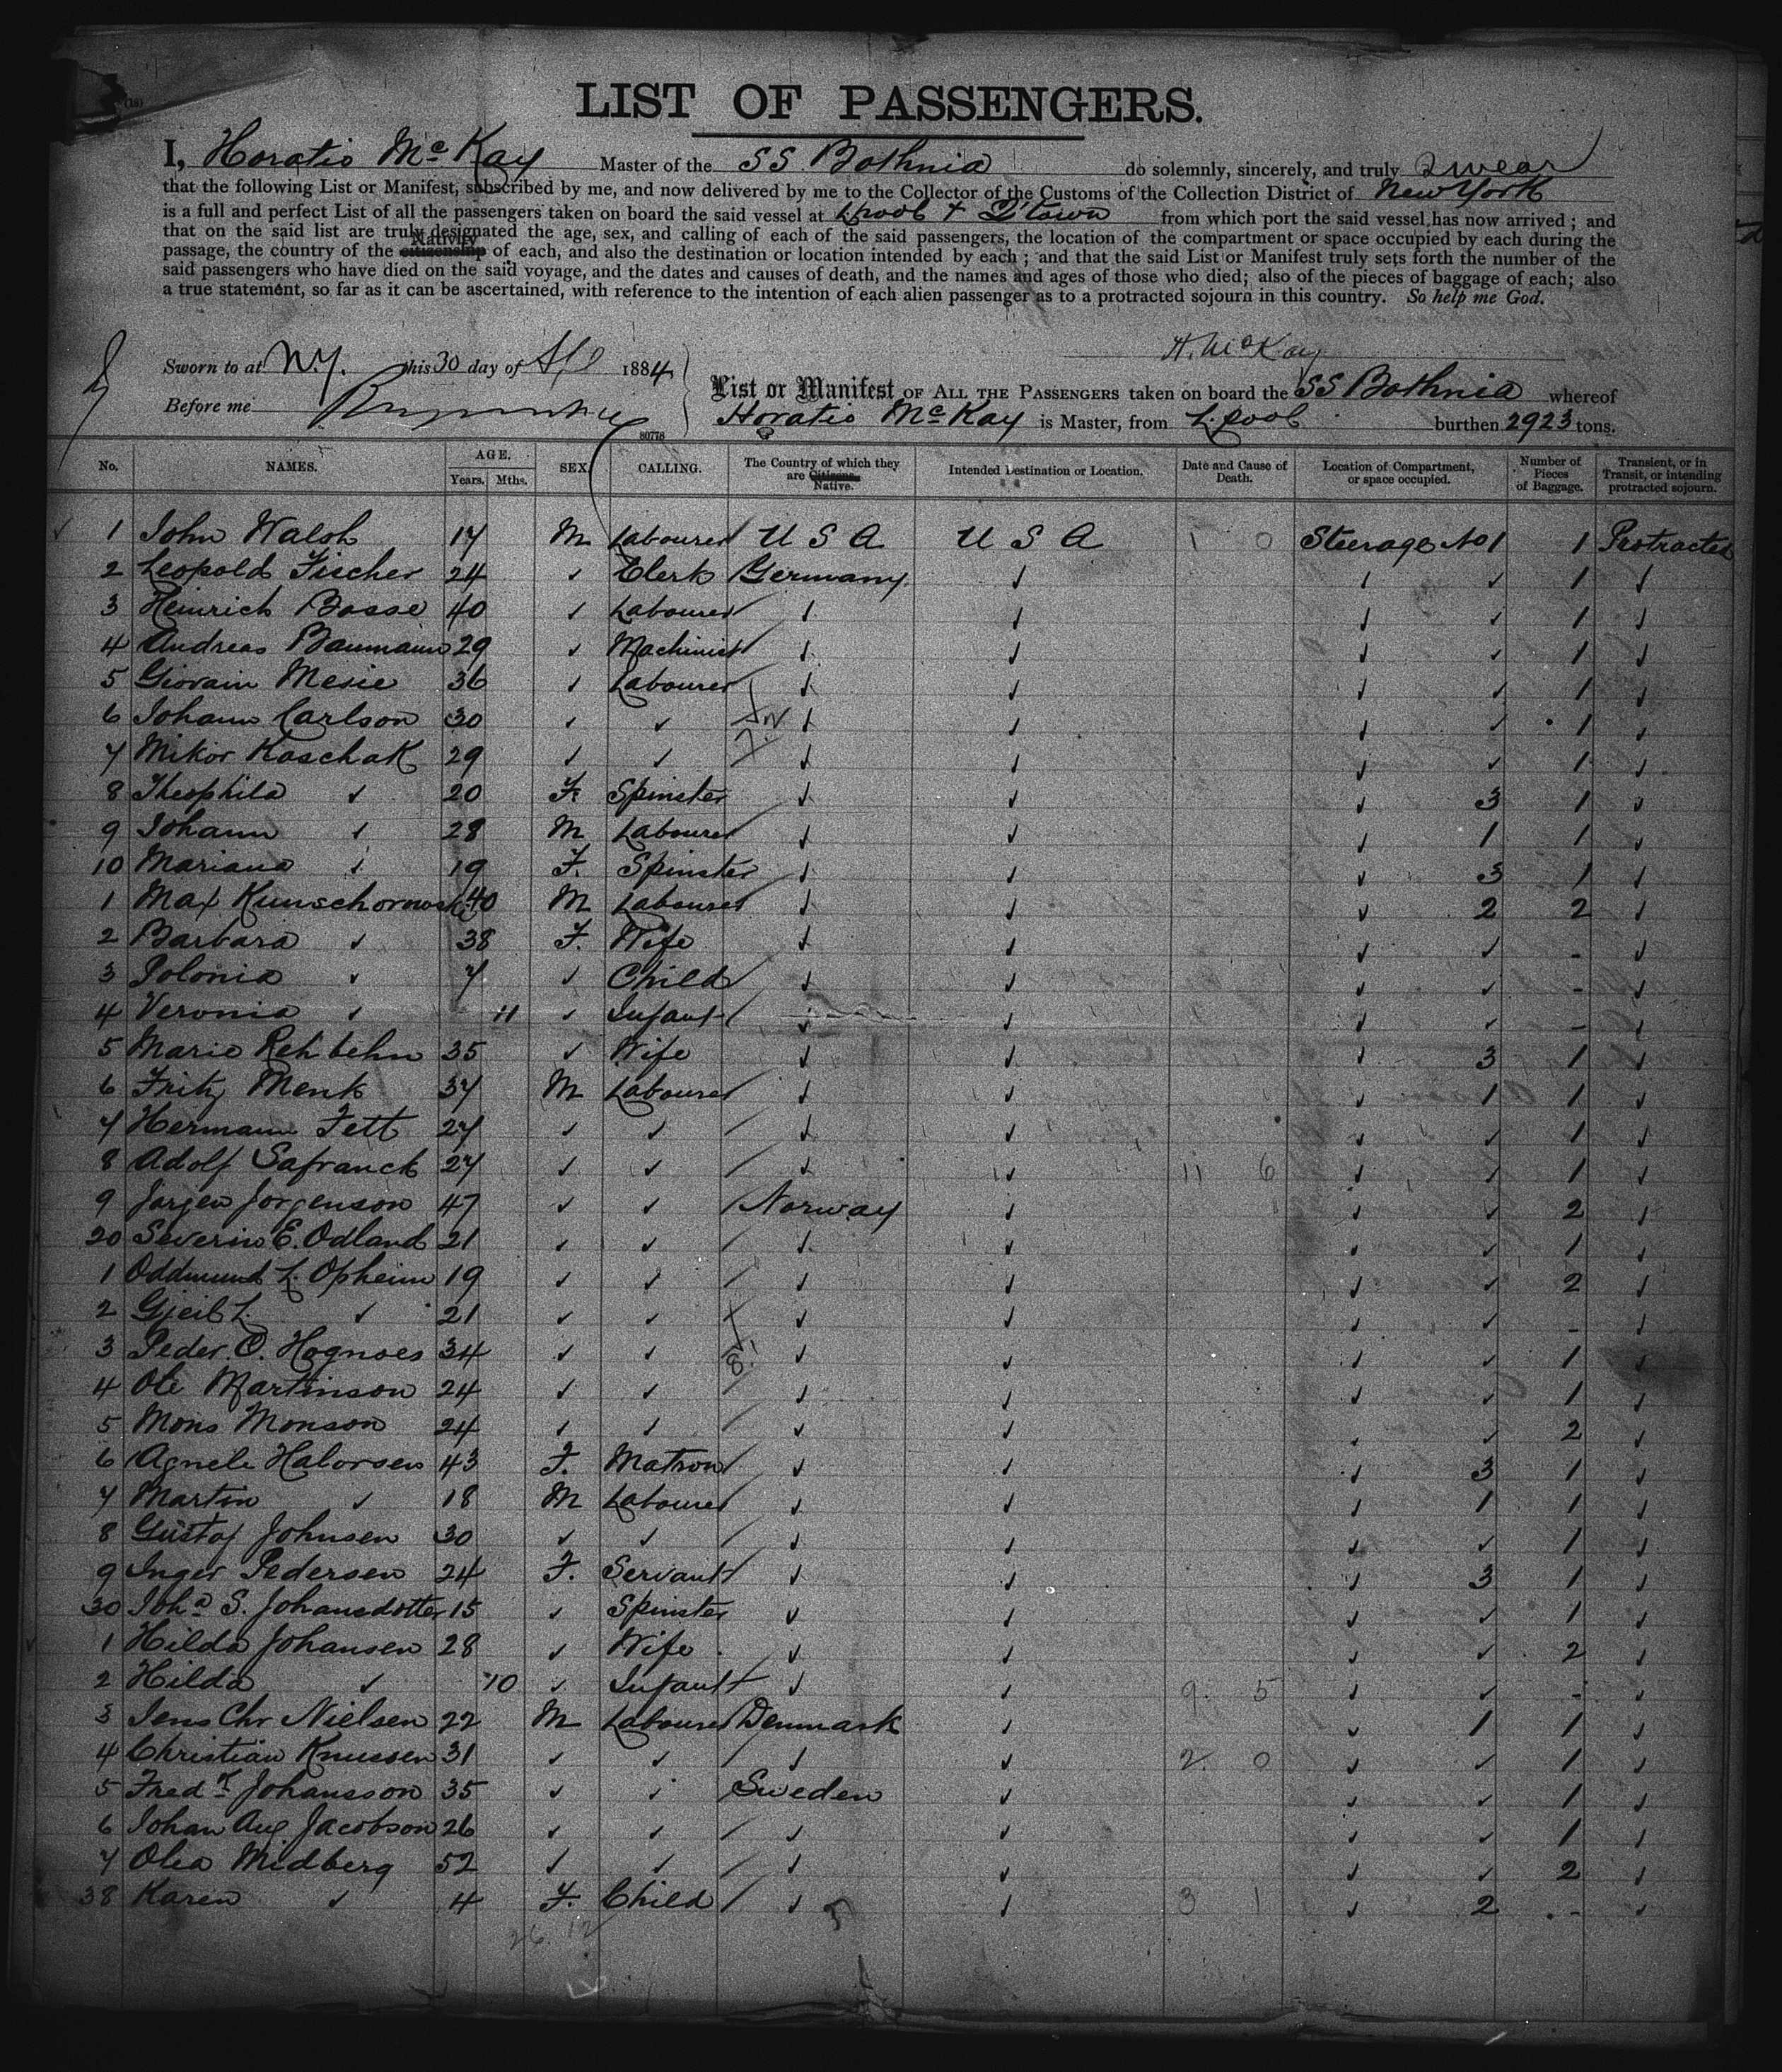 (18)
LIST OF PASSENGERS.
I, Horatio McKay Master of the SS. Bothnia do solemnly, sincerely, and truly swear
that the following List or Manifest, subscribed by me, and now delivered by me to the Collector of the Customs of the Collection District of New York
is a full and perfect List of all the passengers taken on board the said vessel at L'pool & Q'town from which port the said vessel has now arrived; and
that on the said list are truly designated the age, sex, and calling of each of the said passengers, the location of the compartment or space occupied by each during the
Nativity
passage, the country of the citizenship of each, and also the destination or location intended by each; and that the said List or Manifest truly sets forth the number of the
said passengers who have died on the said voyage, and the dates and causes of death, and the names and ages of those who died; also of the pieces of baggage of each; also
a true statement, so far as it can be ascertained, with reference to the intention of each alien passenger as to a protracted sojourn in this country. So help me God.
H. McKay
Sworn to at N.Y. this 30 day of Apl 1884
List or Manifest OF ALL THE PASSENGERS taken on board the SS Bothnia whereof
Before me
Horatio McKay is Master, from L.pool burthen 2923 tons.
80778
No. NAMES. AGE. Years. Mths. SEX. CALLING. The Country of which they are Citizens. Native. Intended Destination or Location. Date and Cause of Death. Location of Compartment, or space occupied. Number of Pieces of Baggage. Transient, or in Transit, or intending protracted sojourn.
1 John Walsh 17 M Labourer U S A U S A 1 0 Steerage No 1 1 Protracted
2 Leopold Fischer 24 ✓ Clerk Germany ✓ ✓ ✓ 1 ✓
3 Heinrich Bosse 40 ✓ Labourer ✓ ✓ ✓ ✓ 1 ✓
4 Andreas Baumann 29 ✓ Machinist ✓ ✓ ✓ ✓ 1 ✓
5 Giovain Mesie 36 ✓ Labourer ✓ ✓ ✓ ✓ 1 ✓
6 Johann Carlson 30 ✓ ✓ ✓ ✓ ✓ ✓ 1 ✓
7 Mikor Kaschak 29 ✓ ✓ ✓ ✓ ✓ ✓ 1 ✓
8 Theophila ✓ 20 F. Spinster ✓ ✓ ✓ 3 1 ✓
9 Johann ✓ 28 M Labourer ✓ ✓ ✓ 1 1 ✓
10 Mariana ✓ 19 F. Spinster ✓ ✓ ✓ 3 1 ✓
1 Max Kunschorowski 40 M Labourer ✓ ✓ ✓ 2 2 ✓
2 Barbara ✓ 38 F. Wife ✓ ✓ ✓ ✓ - ✓
3 Polonia ✓ 7 ✓ Child ✓ ✓ ✓ ✓ - ✓
4 Veronia ✓ 11 ✓ Infant ✓ ✓ ✓ ✓ - ✓
5 Marie Rehbehn 35 ✓ Wife ✓ ✓ ✓ 3 1 ✓
6 Fritz Menk 37 M Labourer ✓ ✓ ✓ 1 1 ✓
7 Hermann Fett 27 ✓ ✓ ✓ ✓ ✓ ✓ 1 ✓
8 Adolf Safranck 27 ✓ ✓ ✓ ✓ 11 6 ✓ ✓ 1 ✓
9 Jorgen Jorgenson 47 ✓ ✓ Norway ✓ ✓ ✓ 2 ✓
20 Severin E. Odland 21 ✓ ✓ ✓ ✓ ✓ ✓ 1 ✓
1 Oddmund L. Opheim 19 ✓ ✓ ✓ ✓ ✓ ✓ 2 ✓
2 Gjeib L. ✓ 21 ✓ ✓ ✓ ✓ ✓ ✓ - ✓
3 Peder. O. Hognoes 34 ✓ ✓ ✓ ✓ ✓ ✓ 1 ✓
4 Ole Martinson 24 ✓ ✓ ✓ ✓ ✓ ✓ 1 ✓
5 Mons Monson 24 ✓ ✓ ✓ ✓ ✓ ✓ 2 ✓
6 Agnele Halorsen 43 F. Matron ✓ ✓ ✓ 3 1 ✓
7 Martin ✓ 18 M Labourer ✓ ✓ ✓ 1 1 ✓
8 Gustaf Johnsen 30 ✓ ✓ ✓ ✓ ✓ ✓ 1 ✓
9 Inger Pedersen 24 F. Servant ✓ ✓ ✓ 3 1 ✓
30 Joha S. Johansdotter 15 ✓ Spinster ✓ ✓ ✓ ✓ 1 ✓
1 Hilda Johansen 28 ✓ Wife ✓ ✓ ✓ ✓ 2 ✓
2 Hilda ✓ 10 ✓ Infant ✓ ✓ 9. 5 ✓ ✓ - ✓
3 Jens Chr Nielsen 22 M Labourer Denmark ✓ ✓ 1 1 ✓
4 Christian Knussen 31 ✓ ✓ ✓ ✓ 2 0 ✓ ✓ 1 ✓
5 Fredr Johansson 35 ✓ ✓ Sweden ✓ ✓ ✓ 1 ✓
6 Johan Aug Jacobson 26 ✓ ✓ ✓ ✓ ✓ ✓ 1 ✓
7 Olea Midberg 52 ✓ ✓ ✓ ✓ ✓ ✓ 2 ✓
38 Karen ✓ 4 F. Child ✓ ✓ 3 1 ✓ 2 - ✓
26 12